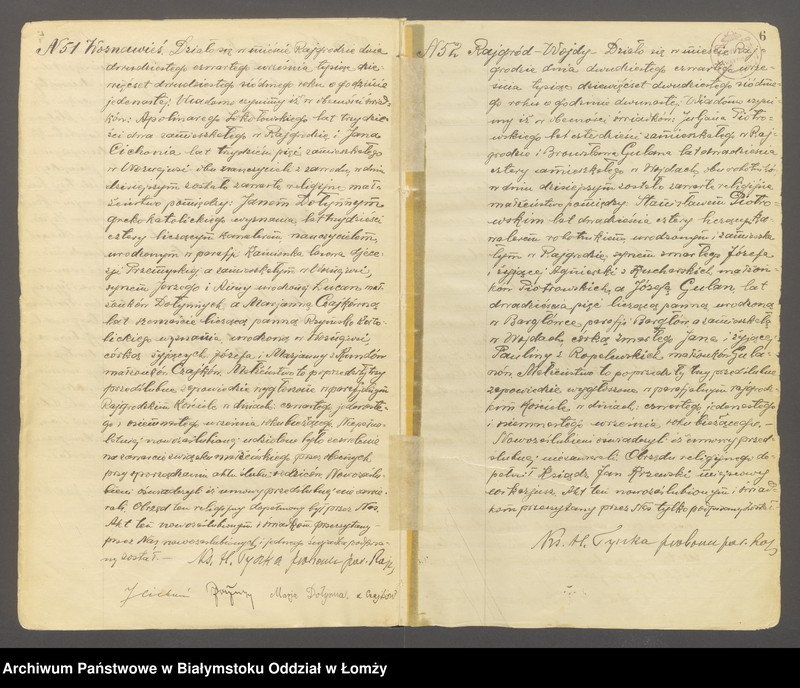 N51 Woznawieś. Działo się w mieście Rajgrodzie dnia
dwudziestego czwartego września tysiąc dzie-
więćset dwudziestego siódmego roku o godzinie
jedenastej. Wiadomo czynimy iż w obecności świad-
ków: Apolinarego Sokołowskiego lat trzydzie-
ści dwa zamieszkałego w Rajgrodzie i Jana
Cichonia lat trzydzieści pięć zamieszkałego
w Woznejwsi oba nauczycieli z zawodu, w dniu
dzisiejszym zostało zawarte religijne mał-
żeństwo pomiędzy: Janem Dołynnym
grecko katolickiego wyznania lat trzydzieści
cztery liczącym kawalerem nauczycielem,
urodzonym w parafji Kamionka djece-
zji Przemyskiej a zamieszkałym w Woznejwsi,
synem Jerzego i Anny urodzonej Lucan mał-
żonków Dołynnych, a Marjanną Czajkówną
lat liczącą panną Rzymsko Kato-
lickiego wyznania urodzoną w Woznejwsi,
córką żyjących Józefa i Marjanny z
małżonków Czajków. Małżeństwo to poprzedziły trzy
przedślubne zapowiedzie wygłoszone w parafjalnym
Rajgrodzkim Kościele w dniach: czwartego jedenaste-
go i osiemnastego września roku bieżącego.
nowozaślubionej udzielone było zezwolenie
na zawarcie związku małżeńskiego przez obecnych
przy spisywaniu aktu ślubu rodziców. Nowozaślu-
bieni oświadczyli iż umowy przedślubnej nie zawa-
rali. Obrzęd ten religijny dopełniony był przez Nas.
Akt ten nowozaślubionym i świadkom przeczytany
przez Nas, nowozaślubionych i jednego świadka podpisa-
ny został. — Ks. H. Tyszka proboszcz par. Rajg
J Cichoń Marja Dołynna z Czajków
6
N52 Rajgród – Wojdy – Działo się w mieście Raj-
grodzie dnia dwudziestego czwartego wrze-
śnia tysiąc dziewięćset dwudziestego siódme-
go roku o godzinie dwunastej. Wiadomo czyni-
my iż w obecności świadków: Juljana Piotro-
wskiego lat czterdzieści zamieszkałego w Raj-
grodzie i Bronisława Gulana lat dwadzieścia
cztery zamieszkałego w Wojdach, obu rolników
w dniu dzisiejszym zostało zawarte religijne
małżeństwo pomiędzy: Stanisławem Piotro-
wskim lat dwadzieścia cztery liczącym ka-
walerem robotnikiem, urodzonym i zamieszka-
łym w Rajgrodzie, synem zmarłego Józefa
i żyjącej Agnieszki z Kucharskich małżon-
ków Piotrowskich, a Józefą Gulan, lat
dwadzieścia pięć liczącą panną urodzoną
w Bargłówce parafji Bargłów a zamieszkałą
w Wojdach, córką zmarłego Jana i żyjącej
Pauliny z Kopelewskich małżonków Gula-
nów. Małżeństwo to poprzedziły trzy przedślubne
zapowiedzie wygłoszone w parafjalnym rajgrodz-
kim Kościele w dniach: czwartego jedenastego
i osiemnastego września roku bieżącego. —
Nowozaślubieni oświadczyli iż umowy przed-
ślubnej nie zawarli. Obrzędu religijnego do-
pełnił Ksiądz Jan Krzewski miejscowy
wikarjusz. Akt ten nowozaślubionym i świad-
kom przeczytany przez Nas tylko podpisany został.
Ks. H. Tyszka proboszcz par. Rajg
Archiwum Państwowe w Białymstoku Oddział w Łomży